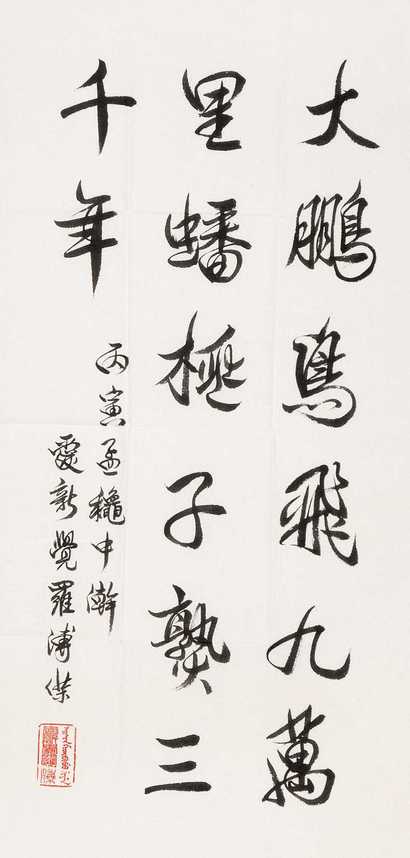 大鵬鳥飛九萬
里蟠桃子熟三
千年
丙寅孟龝中澣
愛新覺羅溥傑